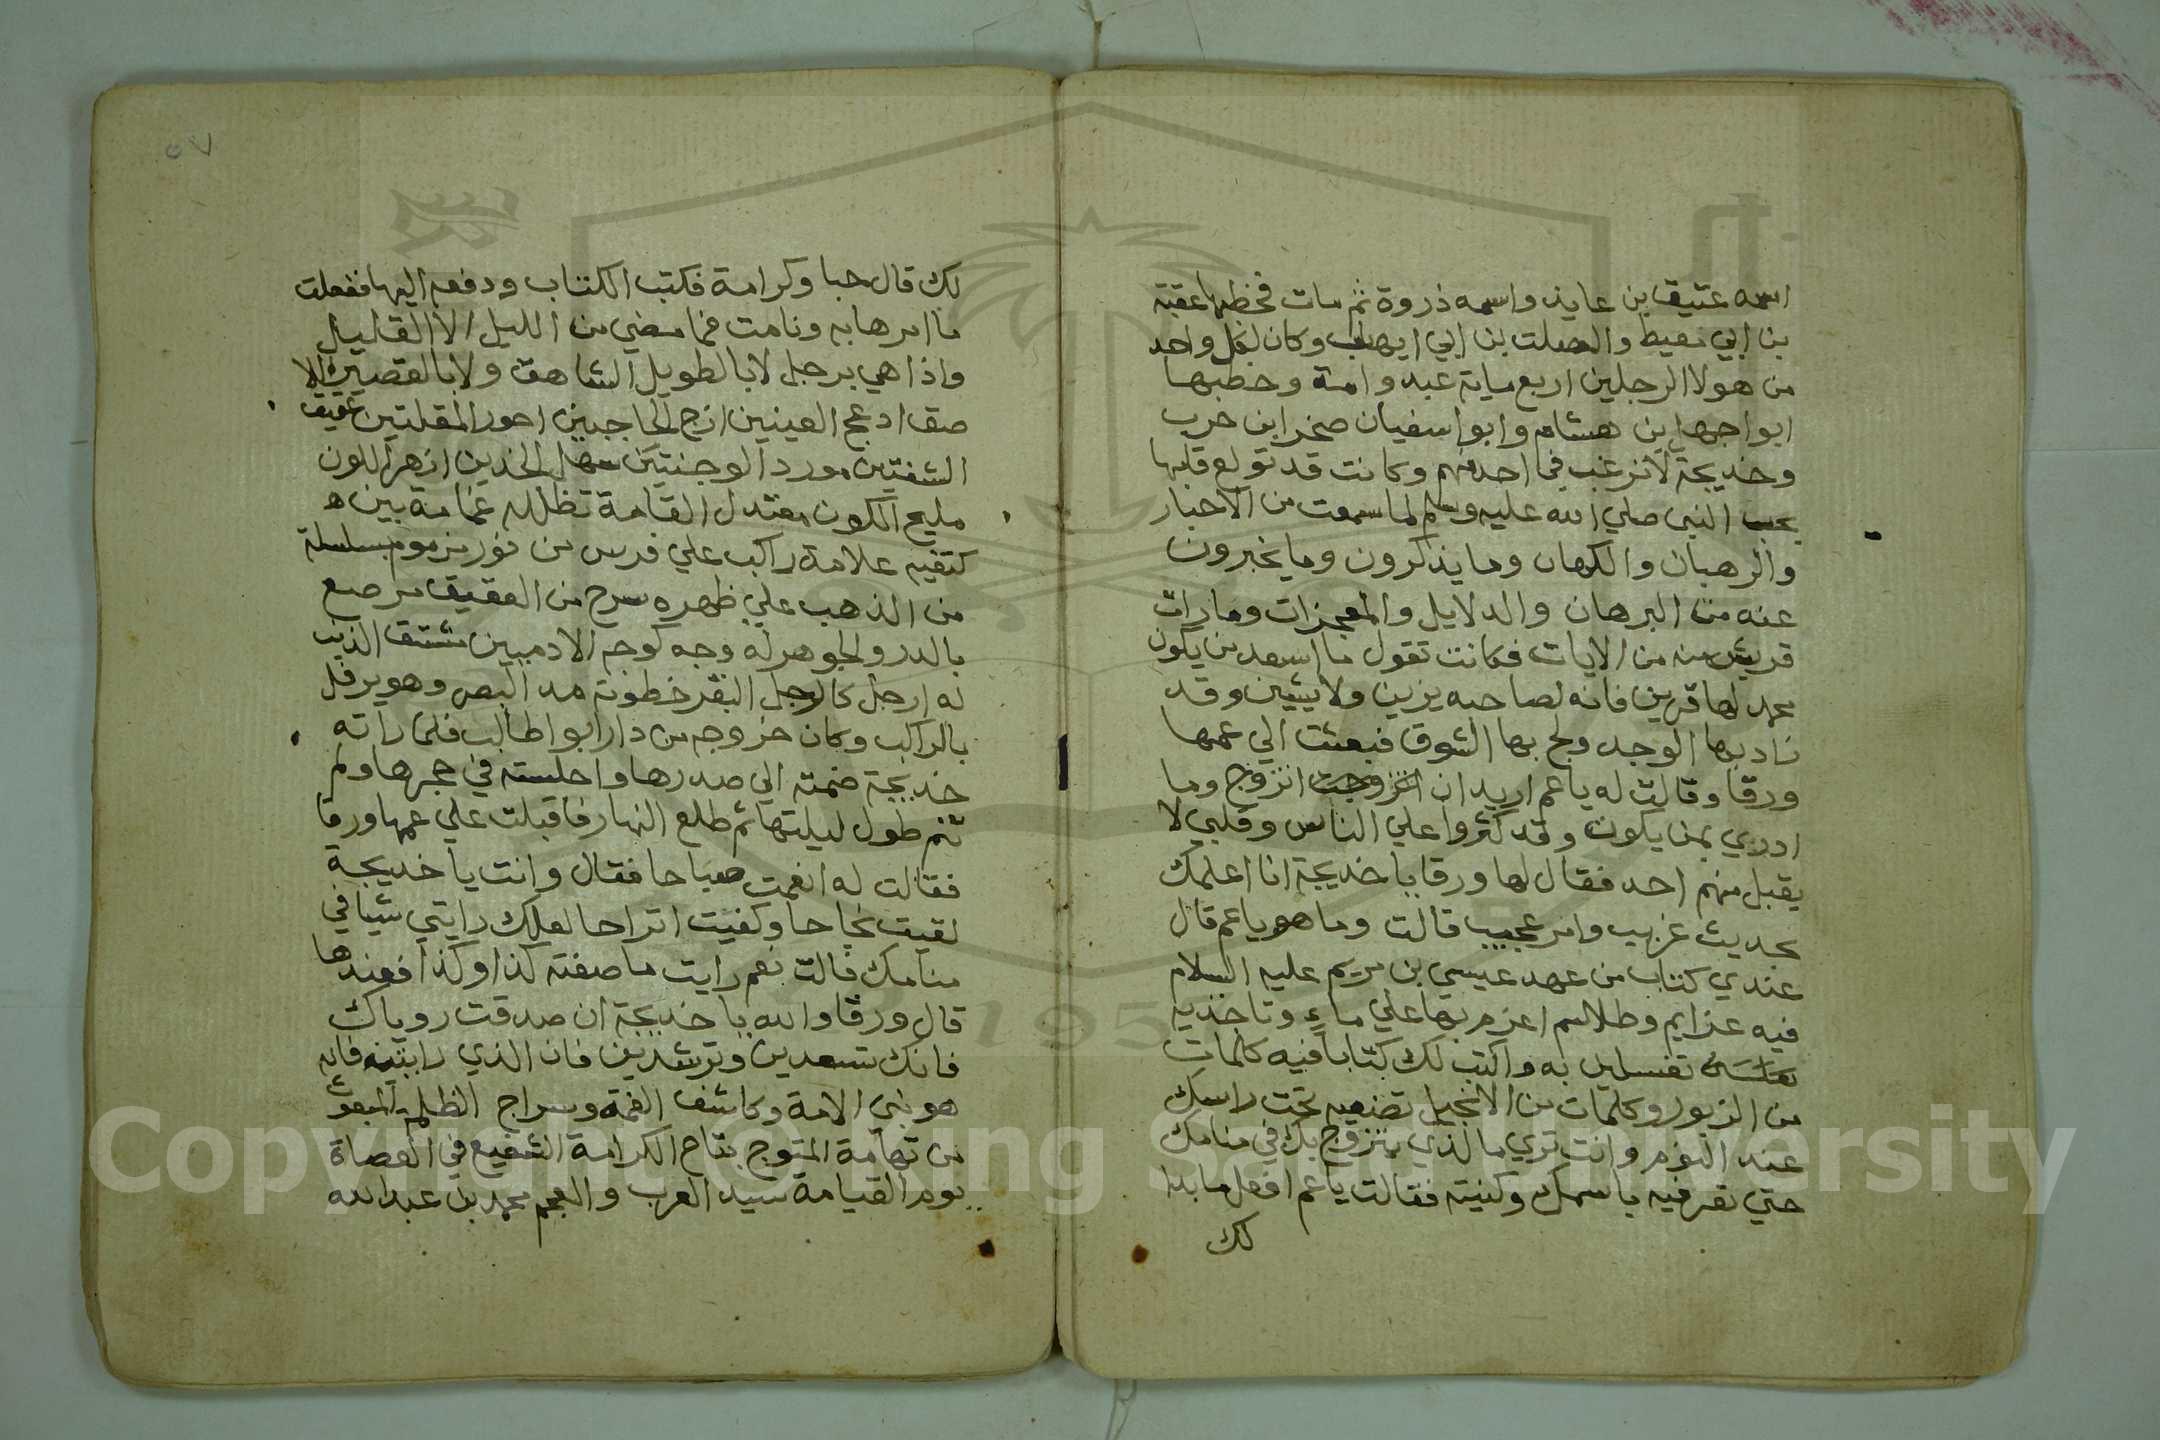 اسمه عتيق بن عايذ واسمه ذروة ثم مات فخطبها عقبة
بن ابي معيط والصلت بن ابي ايهاب وكان لكل واحد
من هولا الرجلين اربع ماية عبد وامة وخطبها
ابوا جهل بن هشام وابوا سفيان صخر ابن حرب
وخديجة لا ترغب في احد منهم وكانت قد تولع قلبها
بحب النبي صلي الله عليه وسلم لما سمعت من الاحبار
والرهبان والكهان وما يذكرون وما يخبرون
عنه من البرهان والدلايل والمعجزات وما رات
قريش منه من الايات فكانت تقول ما اسعد من يكون
محمد لها قرين فانه لصاحبه يزين ولا يشين وقد
زاد بها الوجد ولج بها الشوق فبعثت الي عمها
ورقا وقالت له يا عم اريد ان اتزوج وما
ادري بمن يكون وقد كثروا علي الناس وقلبي لا
يقبل منهم احد فقال لها ورقا يا خديجة انا اعلمك
بحديث غريب وامر عجيب قالت وما هو يا عم قال
عندي كتاب من عهد عيسي بن مريم عليه السلام
فيه عزايم وطلاسم اعزم بها علي ماء وتاخذيه
تغتسلين به واكتب لك كتابا فيه كلمات
من الزبور وكلمات من الانجيل تضعيه تحت راسك
عند النوم وانت تري ما لذي يتزوج بك في منامك
حتي تعرفيه باسمك وكنيته فقالت يا عم افعل ما بدا
لك
٥٧
لك قال حبا وكرامة فكتب الكتاب ودفعه اليها ففعلت
ما امرها به ونامت فما مضي من الليل الا القليل
واذا هي برجل لا بالطويل الشاهق ولا بالقصير اللا
صق ادعج العينين ازج الحاجبين احور المقلتين عقيق
الشفتين مورد الوجنتين سهل الخدين ازهر اللون
مليح الكون معتدل القامة تظلله غمامة بين
كتفيه علامة راكب علي فرس من نور مزموم بسلسلة
من الذهب علي ظهره سرج من العقيق مرصع
بالدر والجوهر له وجه كوجه الادميين مشتق الذنب
له ارجل كارجل البقر خطوته مد البصر وهو يرفل
بالراكب وكان خروجه من دار ابوا طالب فلما راته
خديجة ضمته الي صدرها واجلسته في حجرها ولم
تنم طول ليلتها ثم طلع النهار فاقبلت علي عمها ورقا
فقالت له انعمت صباحا فقال وانت يا خديجة
لقيت نجاحا وكفيت اتراحا لعلك رايتي شيا في
منامك قالت نعم رايت ما صفته كذا وكذا فعندها
قال ورقا والله يا خديجة ان صدقت روياك
فانك تسعدين وترشدين فان الذي رايتيه فانه
هو نبي الامة وكاشف الغمة وسراج الظلمة المبعوث
من تهامة المتوج بتاج الكرامة الشفيع في العصاة
يوم القيامة سيد العرب والعجم محمد بن عبد الله
Copyright © King Saud University
1957